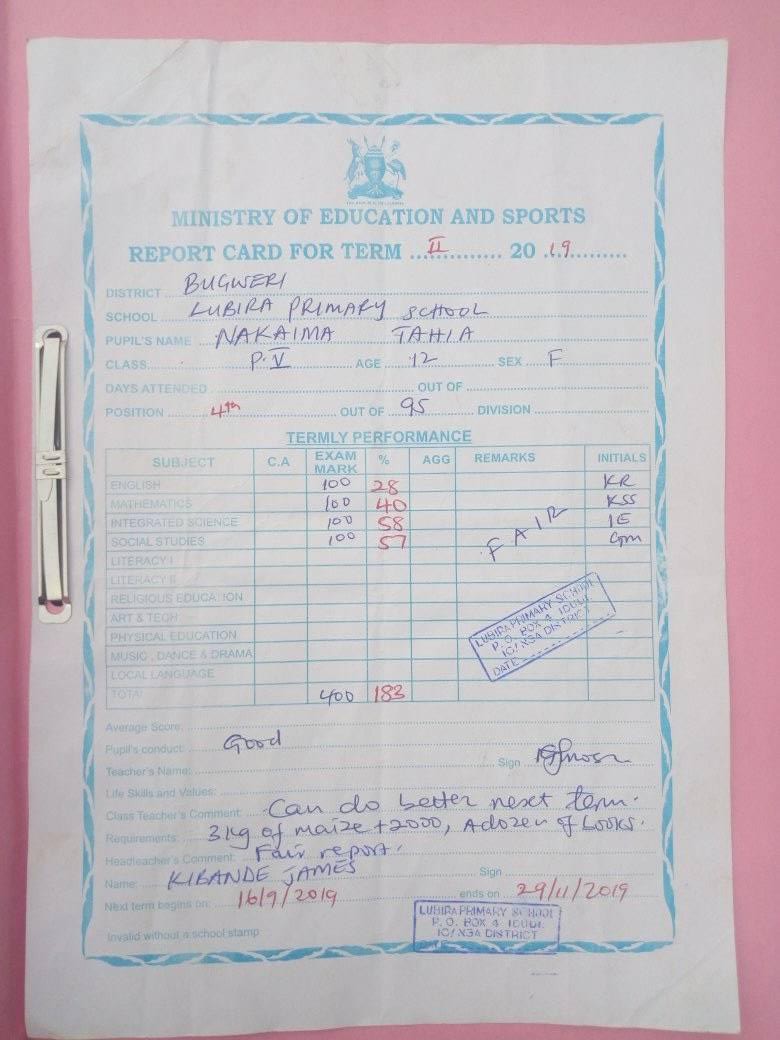 MINISTRY OF EDUCATION AND SPORTS
REPORT CARD FOR TERM II 20 19
DISTRICT BUGWERI
SCHOOL LUBIRA PRIMARY SCHOOL
PUPIL'S NAME NAKAIMA TAHIA
CLASS P.V AGE 12 SEX F
DAYS ATTENDED OUT OF
POSITION 4th OUT OF 95 DIVISION
TERMLY PERFORMANCE
SUBJECT C.A EXAM MARK % AGG REMARKS INITIALS
ENGLISH 100 28 KR
MATHEMATICS 100 40 KSS
INTEGRATED SCIENCE 100 58 FAIR IE
SOCIAL STUDIES 100 57 Gm
LITERACY I
LITERACY II
RELIGIOUS EDUCATION
ART & TECH
PHYSICAL EDUCATION
MUSIC, DANCE & DRAMA
LOCAL LANGUAGE
TOTAL 400 183
LUBIRA PRIMARY SCHOOL
P. O. BOX 4 IDUDI
IGANGA DISTRICT
DATE
Average Score:
Pupil's conduct: Good
Teacher's Name: Sign
Life Skills and Values:
Class Teacher's Comment: Can do better next term.
Requirements: 3kg of maize +2000, A dozen of books.
Headteacher's Comment: Fair report.
Name: KIBANDE JAMES Sign
Next term begins on: 16/9/2019 ends on 29/11/2019
Invalid without a school stamp
LUBIRA PRIMARY SCHOOL
P. O. BOX 4 IDUDI
IGANGA DISTRICT
DATE